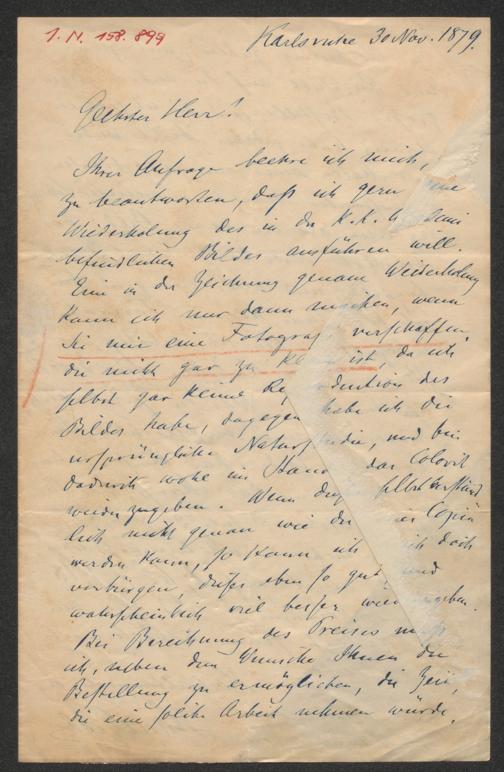 I. N. 158.899
Karlsruhe 30 Nov. 1879.
Geehrter Herr!
Ihrer Anfrage beehre ich mich,
zu beantworten, daß ich gern eine
Wiederholung des in der K. K.
befindlichen Bildes ausführen will.
Eine in der Zeichnung genaue Wiederholung
kann ich nur dann machen, wenn
Sie mir eine Fotograf verschaffen,
die nicht gar zu ist, da ich
selbst gar keine Reproduktion des
Bildes habe, dagegen habe ich die
ursprüngliche Naturstudie, und bin
dadurch wohl im Stande das Colorit
wiederzugeben. Wenn dies selbstverständ
lich nicht genau wie der Copie
werden kann, so kann ich mich doch
verbürgen, dieses eben so gut, und
wahrscheinlich viel besser wiederzugeben.
Bei Berechnung des Preises muß
ich, neben dem Wunsche Ihnen die
Bestellung zu ermöglichen, die Zeit,
die eine solide Arbeit nehmen würde,